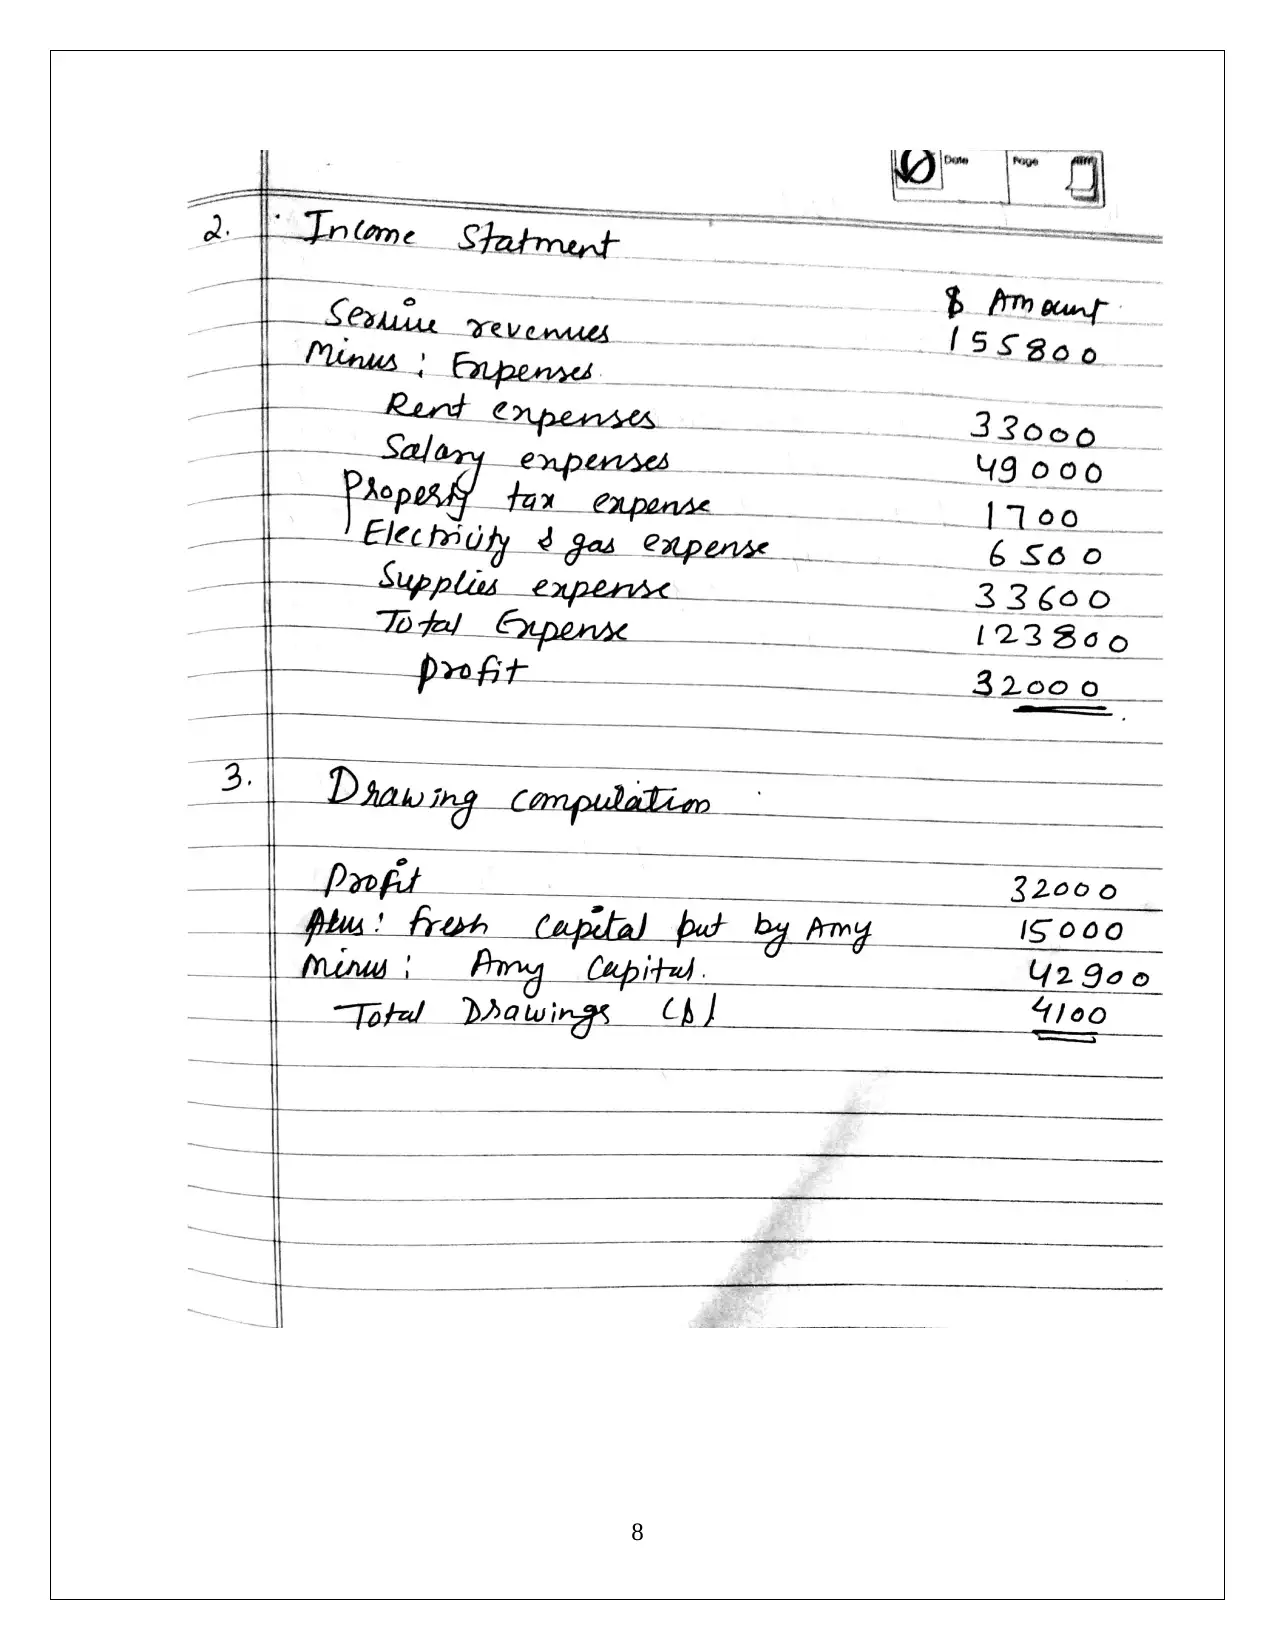 Date Page
2. Income Statment
$ Amount
Service revenues 155800
Minus : Expenses
Rent expenses 33000
Salary expenses 49000
Property tax expense 1700
Electricity & gas expense 6500
Supplies expense 33600
Total Expense 123800
profit 32000
3. Drawing computation
Profit 32000
Plus : fresh capital put by Amy 15000
Minus : Amy Capital. 42900
Total Drawings 4100
8